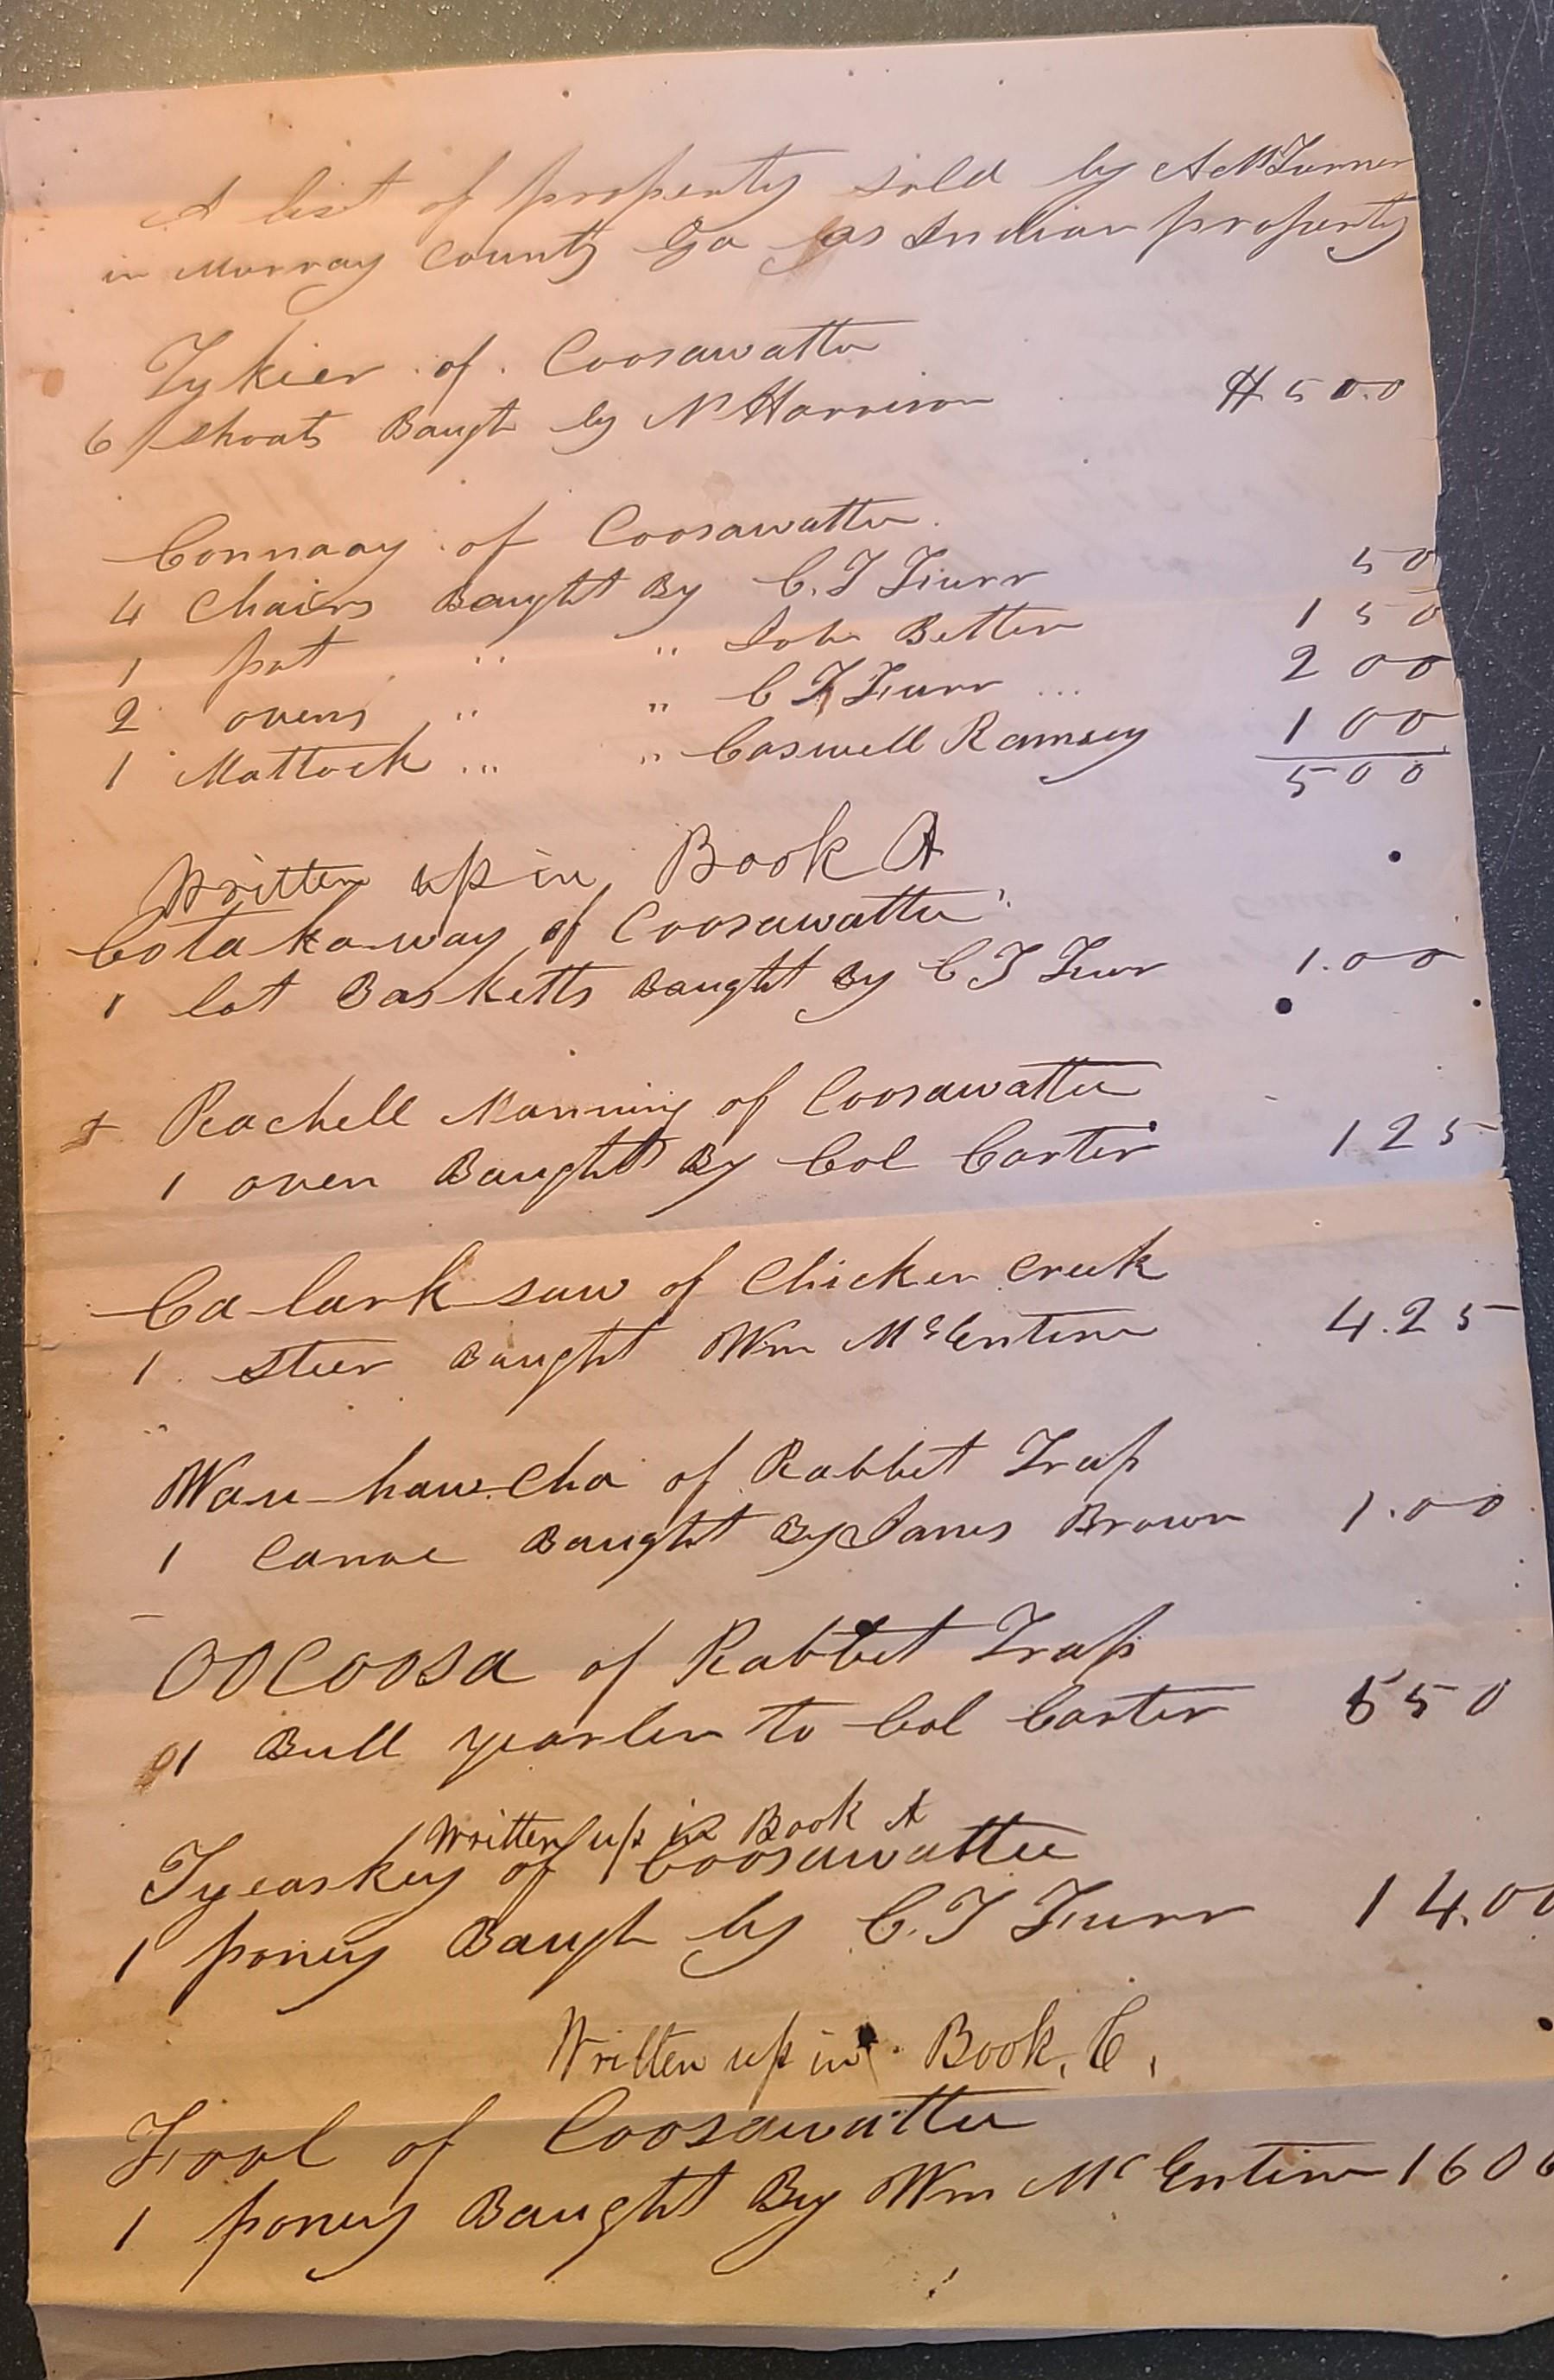 A list of property sold by A McTurner
in Murray County Ga as Indian property
Tykier of Coosawattee
6 Shoats Baught by N Harrison $ 5 00
Connaay of Coosawattee
4 Chairs Baught By C. T Furr 50
1 pot " " John Better 1 50
2 ovens " " C T Furr ... 2 00
1 Mattock ... " Caswell Ramsey 1 00
5 00
Written up in Book A
Cotakaway of Coosawattee
1 lot Basketts Baught By C T Furr 1.00
+ Rachell Manning of Coosawattee
1 oven Baught By Col Carter 1 25
Ca-lark-saw of Chicken Creek
1 Steer Baught Wm McEntire 4.25
Wau-haw-cha of Rabbet Trap
1 Canoe Baught By James Brown 1.00
OOCOOSA of Rabbet Trap
1 Bull yearlen to Col Carter 5 50
Written up in Book A
Tyeaskey of Coosawattee
1 poney Baugh by C. T Furr 14.00
Written up in Book. C.
Fool of Coosawattee
1 poney Baught By Wm McEntire 16 00